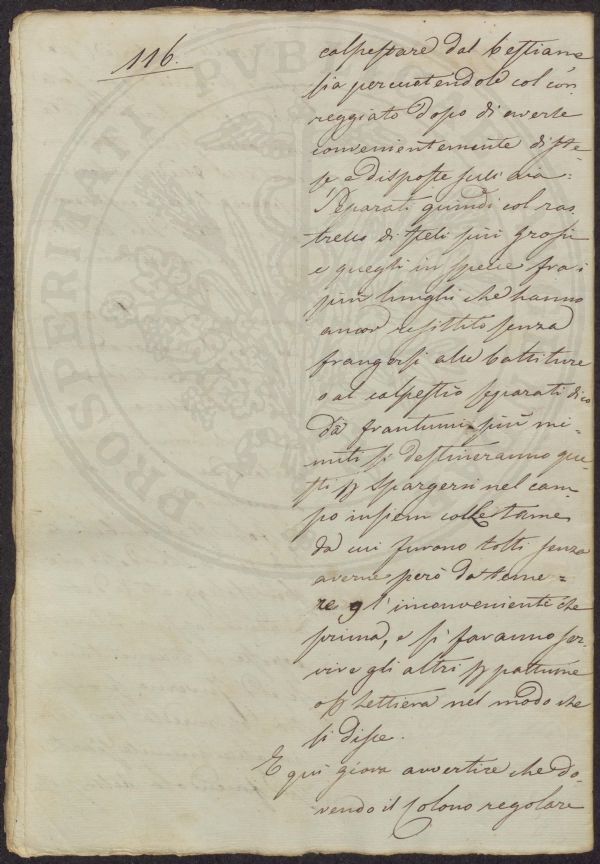 116.
calpestare dal bestiame
sia percuotendole col cor
reggiato dopo di averle
convenientemente diste
se e disposte sull'aia:
Separati quindi col ras
trello di steli più grossi
e quegli in specie fra i
più lunghi che hanno
ancor resistito senza
frangersi alle battiture
o al calpestio separati dico
da frantumi più mi-
nuti si destineranno que
sti p spargersi nel cam
po insiem colle tame
da cui furono tolti senza
averne però da teme=
re gl'inconvenienti che
prima, e si faranno ser-
vire gli altri p pattume
o p lettiera nel modo che
si disse.
E qui giova avvertire che do-
vendo il Colono regolare
PROSPERITATI PVBL